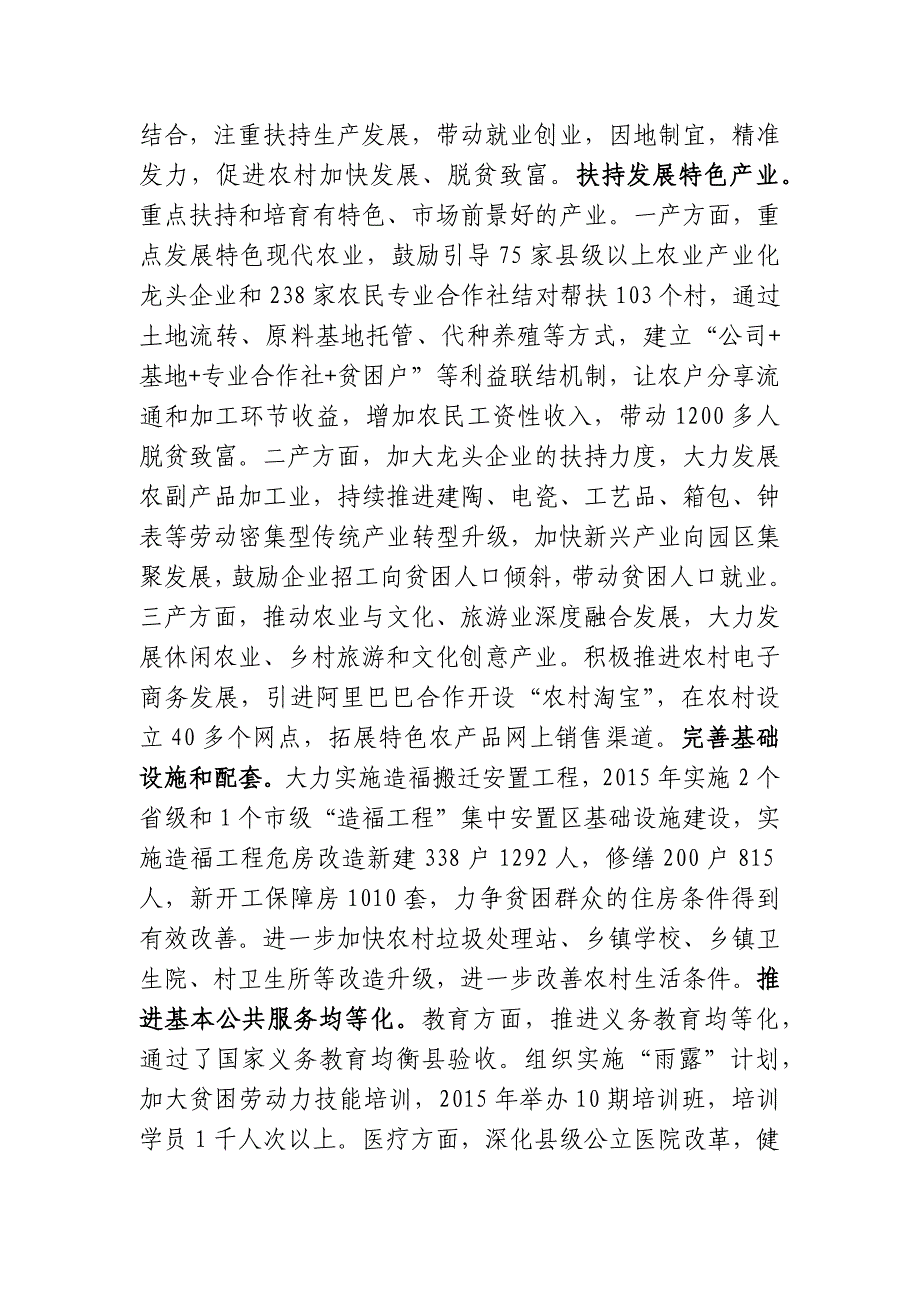 结合，注重扶持生产发展，带动就业创业，因地制宜，精准
发力，促进农村加快发展、脱贫致富。扶持发展特色产业。
重点扶持和培育有特色、市场前景好的产业。一产方面，重
点发展特色现代农业，鼓励引导 75 家县级以上农业产业化
龙头企业和 238 家农民专业合作社结对帮扶 103 个村，通过
土地流转、原料基地托管、代种养殖等方式，建立“公司+
基地+专业合作社+贫困户”等利益联结机制，让农户分享流
通和加工环节收益，增加农民工资性收入，带动 1200 多人
脱贫致富。二产方面，加大龙头企业的扶持力度，大力发展
农副产品加工业，持续推进建陶、电瓷、工艺品、箱包、钟
表等劳动密集型传统产业转型升级，加快新兴产业向园区集
聚发展，鼓励企业招工向贫困人口倾斜，带动贫困人口就业。
三产方面，推动农业与文化、旅游业深度融合发展，大力发
展休闲农业、乡村旅游和文化创意产业。积极推进农村电子
商务发展，引进阿里巴巴合作开设“农村淘宝”，在农村设
立 40 多个网点，拓展特色农产品网上销售渠道。完善基础
设施和配套。大力实施造福搬迁安置工程，2015 年实施 2 个
省级和 1 个市级“造福工程”集中安置区基础设施建设，实
施造福工程危房改造新建 338 户 1292 人，修缮 200 户 815
人，新开工保障房 1010 套，力争贫困群众的住房条件得到
有效改善。进一步加快农村垃圾处理站、乡镇学校、乡镇卫
生院、村卫生所等改造升级，进一步改善农村生活条件。推
进基本公共服务均等化。教育方面，推进义务教育均等化，
通过了国家义务教育均衡县验收。组织实施“雨露”计划，
加大贫困劳动力技能培训，2015 年举办 10 期培训班，培训
学员 1 千人次以上。医疗方面，深化县级公立医院改革，健